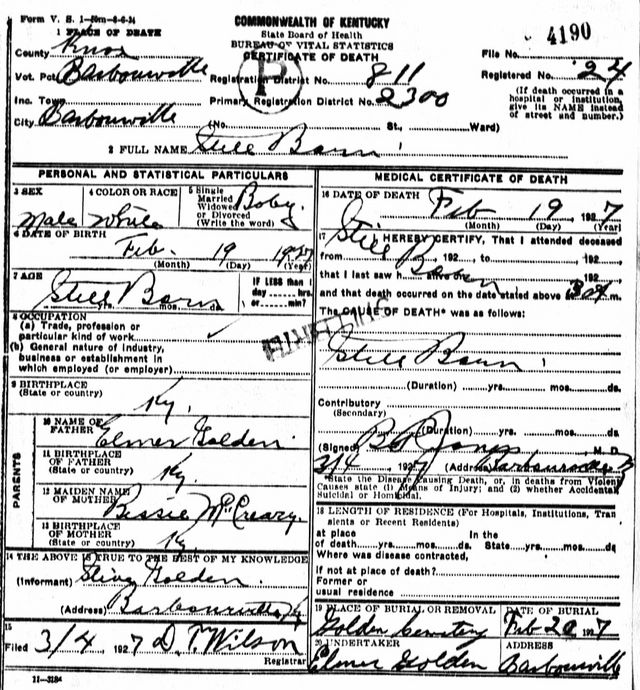 Form V. S. 1-50m-8-6-24
COMMONWEALTH OF KENTUCKY
State Board of Health
BUREAU OF VITAL STATISTICS
CERTIFICATE OF DEATH
4190
1 PLACE OF DEATH
County Knox
File No.
Vot. Pct. Barbourville
Registration District No. 811
Registered No. 24
P
Inc. Town
Primary Registration District No. 2300
(If death occurred in a hospital or institution, give its NAME instead of street and number.)
City Barbourville (No. St., Ward)
2 FULL NAME Still Born
PERSONAL AND STATISTICAL PARTICULARS
3 SEX Male
4 COLOR OR RACE White
5 Single Married Widowed or Divorced (Write the word) Baby
6 DATE OF BIRTH Feb. 19 1927
(Month) (Day) (Year)
7 AGE Still Born
yrs. mos. ds.
IF LESS than 1 day hrs. or min.?
8 OCCUPATION
(a) Trade, profession or particular kind of work
(b) General nature of Industry, business or establishment in which employed (or employer)
9 BIRTHPLACE (State or country) Ky.
PARENTS
10 NAME OF FATHER Elmer Golden
11 BIRTHPLACE OF FATHER (State or country) Ky.
12 MAIDEN NAME OF MOTHER Bessie McCreary
13 BIRTHPLACE OF MOTHER (State or country) Ky.
14 THE ABOVE IS TRUE TO THE BEST OF MY KNOWLEDGE
(Informant) Golden
(Address) Barbourville Ky
15
Filed 3/4 1927 D. T. Wilson
Registrar
11-3184
MEDICAL CERTIFICATE OF DEATH
16 DATE OF DEATH Feb 19, 1927
(Month) (Day) (Year)
17 I HEREBY CERTIFY, That I attended deceased
Still Born
from , 192 , to , 192
that I last saw h alive on , 192
and that death occurred on the date stated above
The CAUSE OF DEATH* was as follows:
Still Born
(Duration) yrs. mos. ds.
Contributory (Secondary)
(Duration) yrs. mos. ds.
(Signed) Jones, M. D.
3/4, 1927 (Address) Barbourville Ky
*State the Disease Causing Death, or, in deaths from Violent Causes state (1) Means of Injury; and (2) whether Accidental, Suicidal or Homicidal.
18 LENGTH OF RESIDENCE (For Hospitals, Institutions, Transients or Recent Residents)
at place of death yrs. mos. ds. In the State yrs. mos. ds.
Where was disease contracted, if not at place of death?
Former or usual residence
19 PLACE OF BURIAL OR REMOVAL Golden Cemetery
DATE OF BURIAL Feb 20 1927
20 UNDERTAKER Elmer Golden
ADDRESS Barbourville